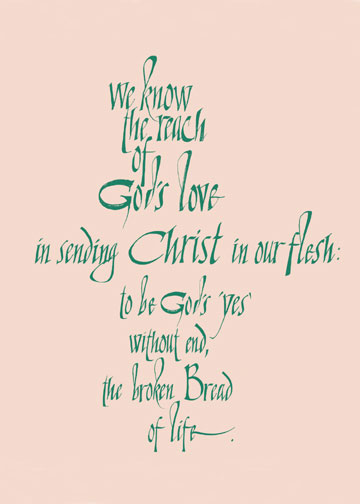 we know
the reach
of
God's love
in sending Christ in our flesh:
to be God's 'yes'
without end,
the broken Bread
of life.